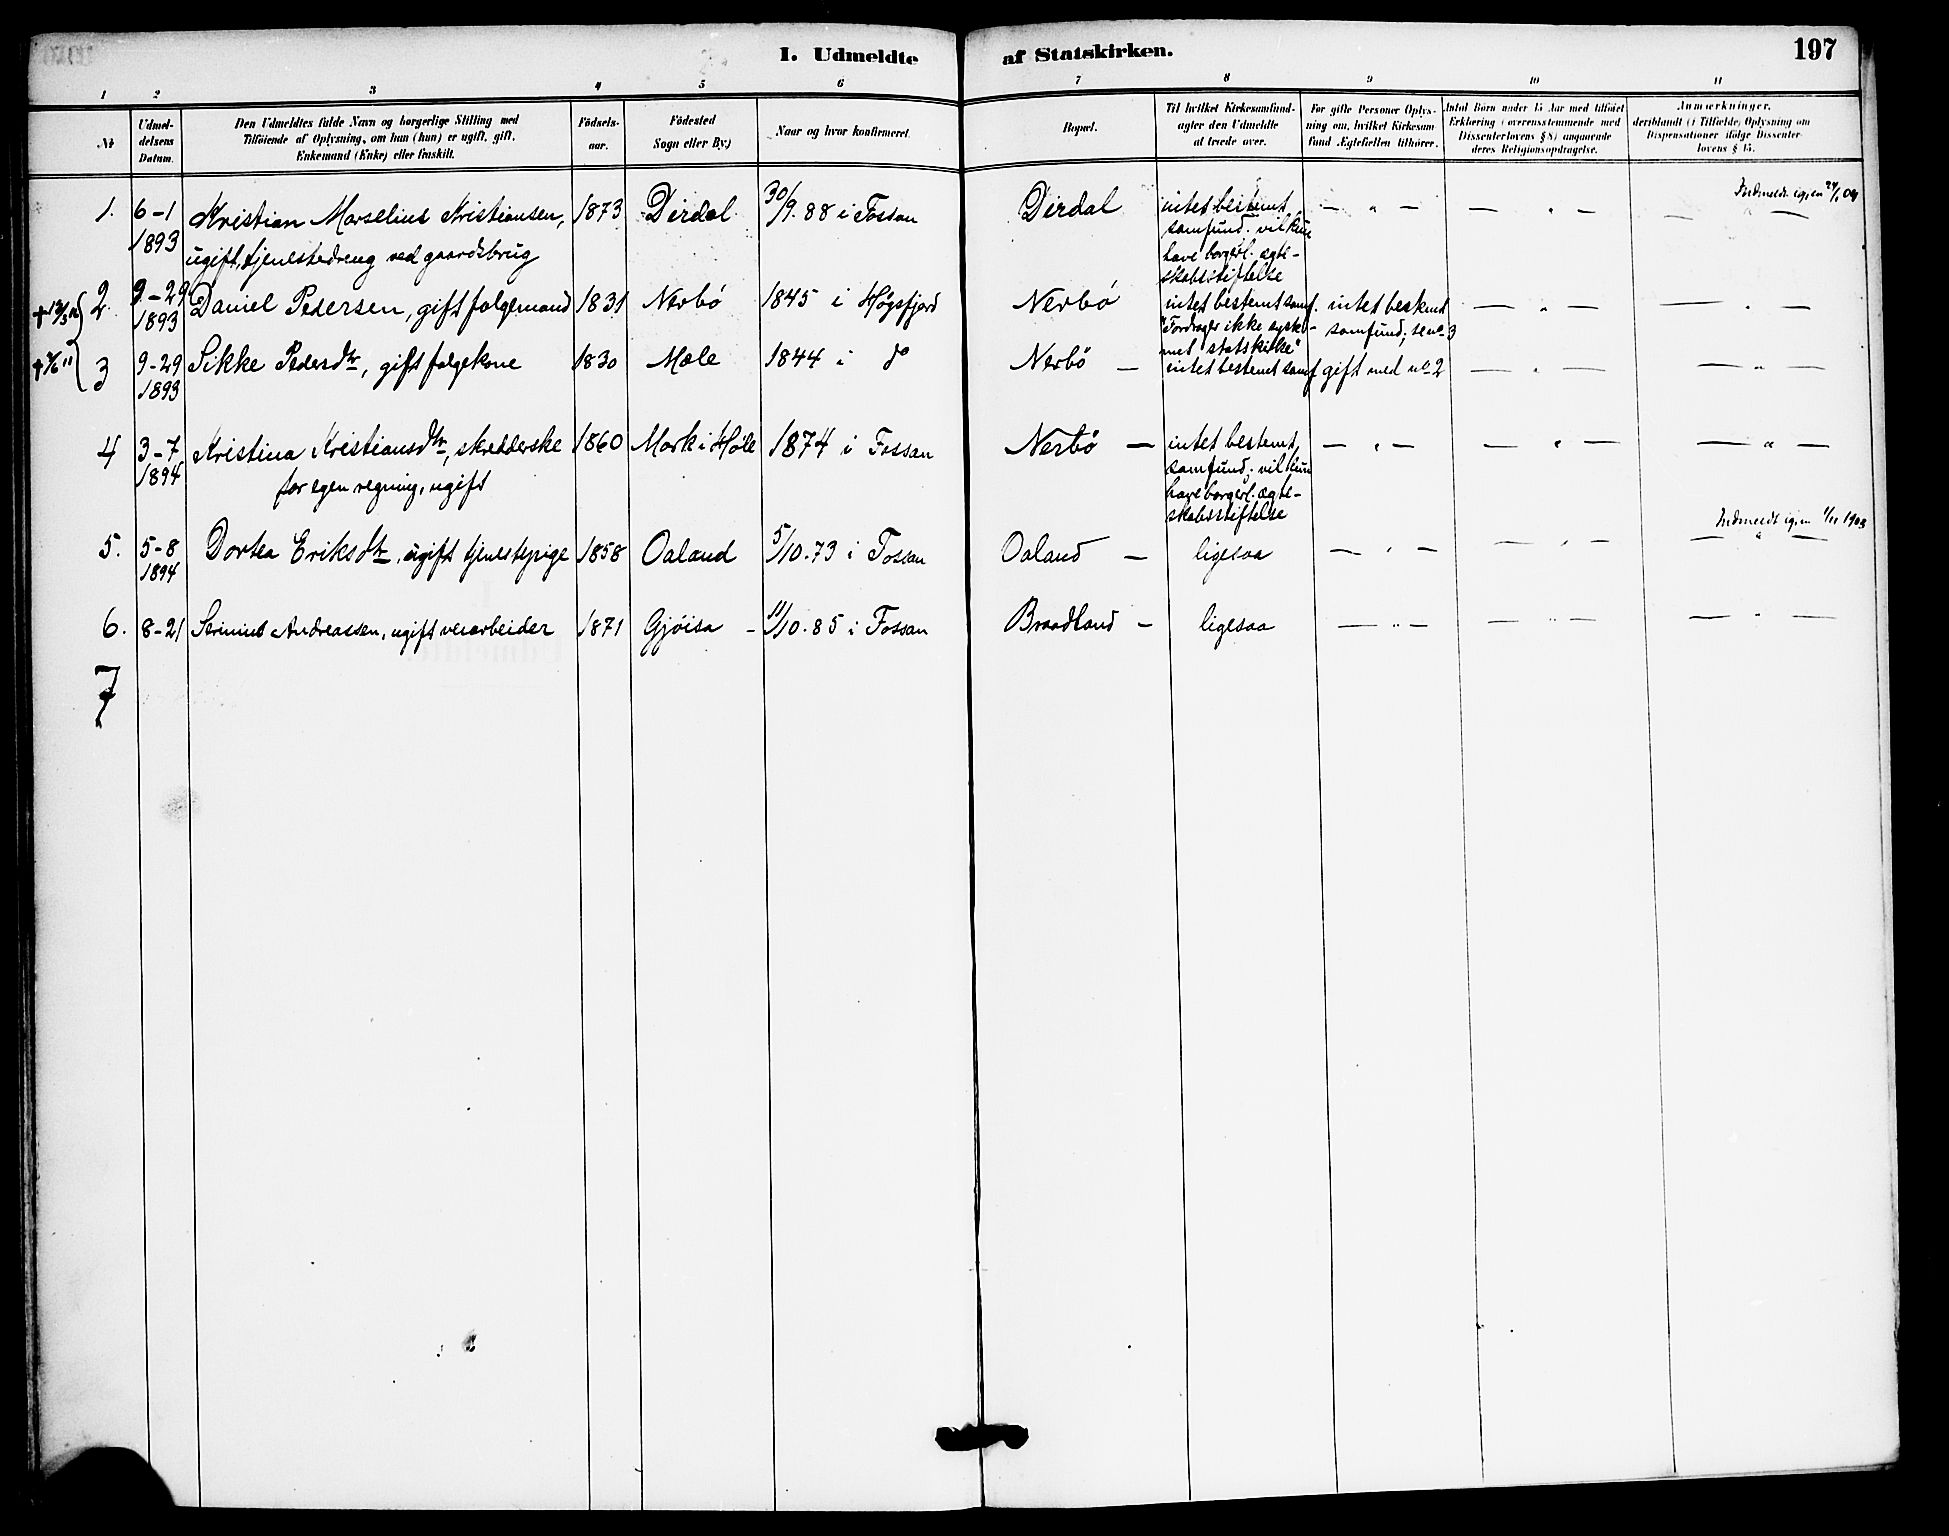 I. Udmeldte af Statskirken. 197
1 2 3 4 5 6 7 8 9 10 11
Nr
Udmel-
delsens
Datum.
Den Udmeldtes fulde Navn og borgerlige Stilling med
Tilføiende af Oplysning, om han (hun) er ugift, gift,
Enkemand (Enke) eller fraskilt.
Fødsels-
aar.
Fødested
Sogn eller By)
Naar og hvor konfirmeret.
Bopæl.
Til hvilket Kirkesamfund
agter den Udmeldte
at træde over.
For gifte Personer Oplys-
ning om, hvilket Kirkesam
fund Ægtefællen tilhører.
Antal Børn under 15 Aar med tilføiet
Erklæring (overensstemmende med
Dissenterlovens § 8) angaaende
deres Religionsopdragelse.
Anmærkninger,
deriblandt (i Tilfælde) Oplysning om
Dispensationer ifølge Dissenter
lovens § 15.
1. 6-1 1893
Kristian Marselius Kristiansen,
ugift, tjenestedreng ved gaardsbrug
1873 Dirdal 30/9. 88 i Fossan Dirdal
intet bestemt
samfund. vil kun
have borgerl. ægte-
skabsstiftelse
— " — — " — — " —
Indmeldt igjen /1 04
2. 9-29 1893
Daniel Pedersen, gift følgemand 1831 Nerbö 1845 i Högsfjord Nerbö
intet bestemt samf.
"Fordrages ikke
med statskirke"
intet bestemt
samfund; se no 3
— " — — " —
3 9-29 1893
Sikke Pedersdtr, gift følgekone 1830 Mæle 1844 i do Nerbö —
intet bestemt samf gift med no 2 — " — — " —
4 3-7 1894
Kristina Kristiansdtr, skredderske
for egen regning, ugift
1860 Mork i Høle 1874 i Fossan Nerbö —
intet bestemt
samfund. vil kun
have borgerl. ægte-
skabsstiftelse
— " — — " — — " —
5. 5-8 1894
Dortea Eriksdtr, ugift tjenestepige 1858 Oaland 5/10. 73 i Fossan Oaland — ligesaa — " — — " — — " —
Indmeldt igjen 1903
6. 8-21 Serinius Andreassen, ugift veiarbeider 1871 Gjöisa – 11/10. 85 i Fossan Braadland — ligesaa — " — — " — — " —
7